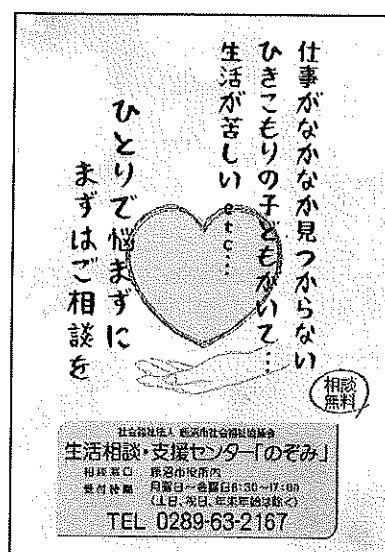 仕事がなかなか見つからない
ひきこもりの子どもがいて…
生活が苦しい etc…
ひとりで悩まずに
まずはご相談を
相談
無料
社会福祉法人 鹿沼市社会福祉協議会
生活相談・支援センター「のぞみ」
相談窓口 鹿沼市役所内
受付時間 月曜日～金曜日8:30～17:00
(土日、祝日、年末年始は除く)
TEL 0289-63-2167